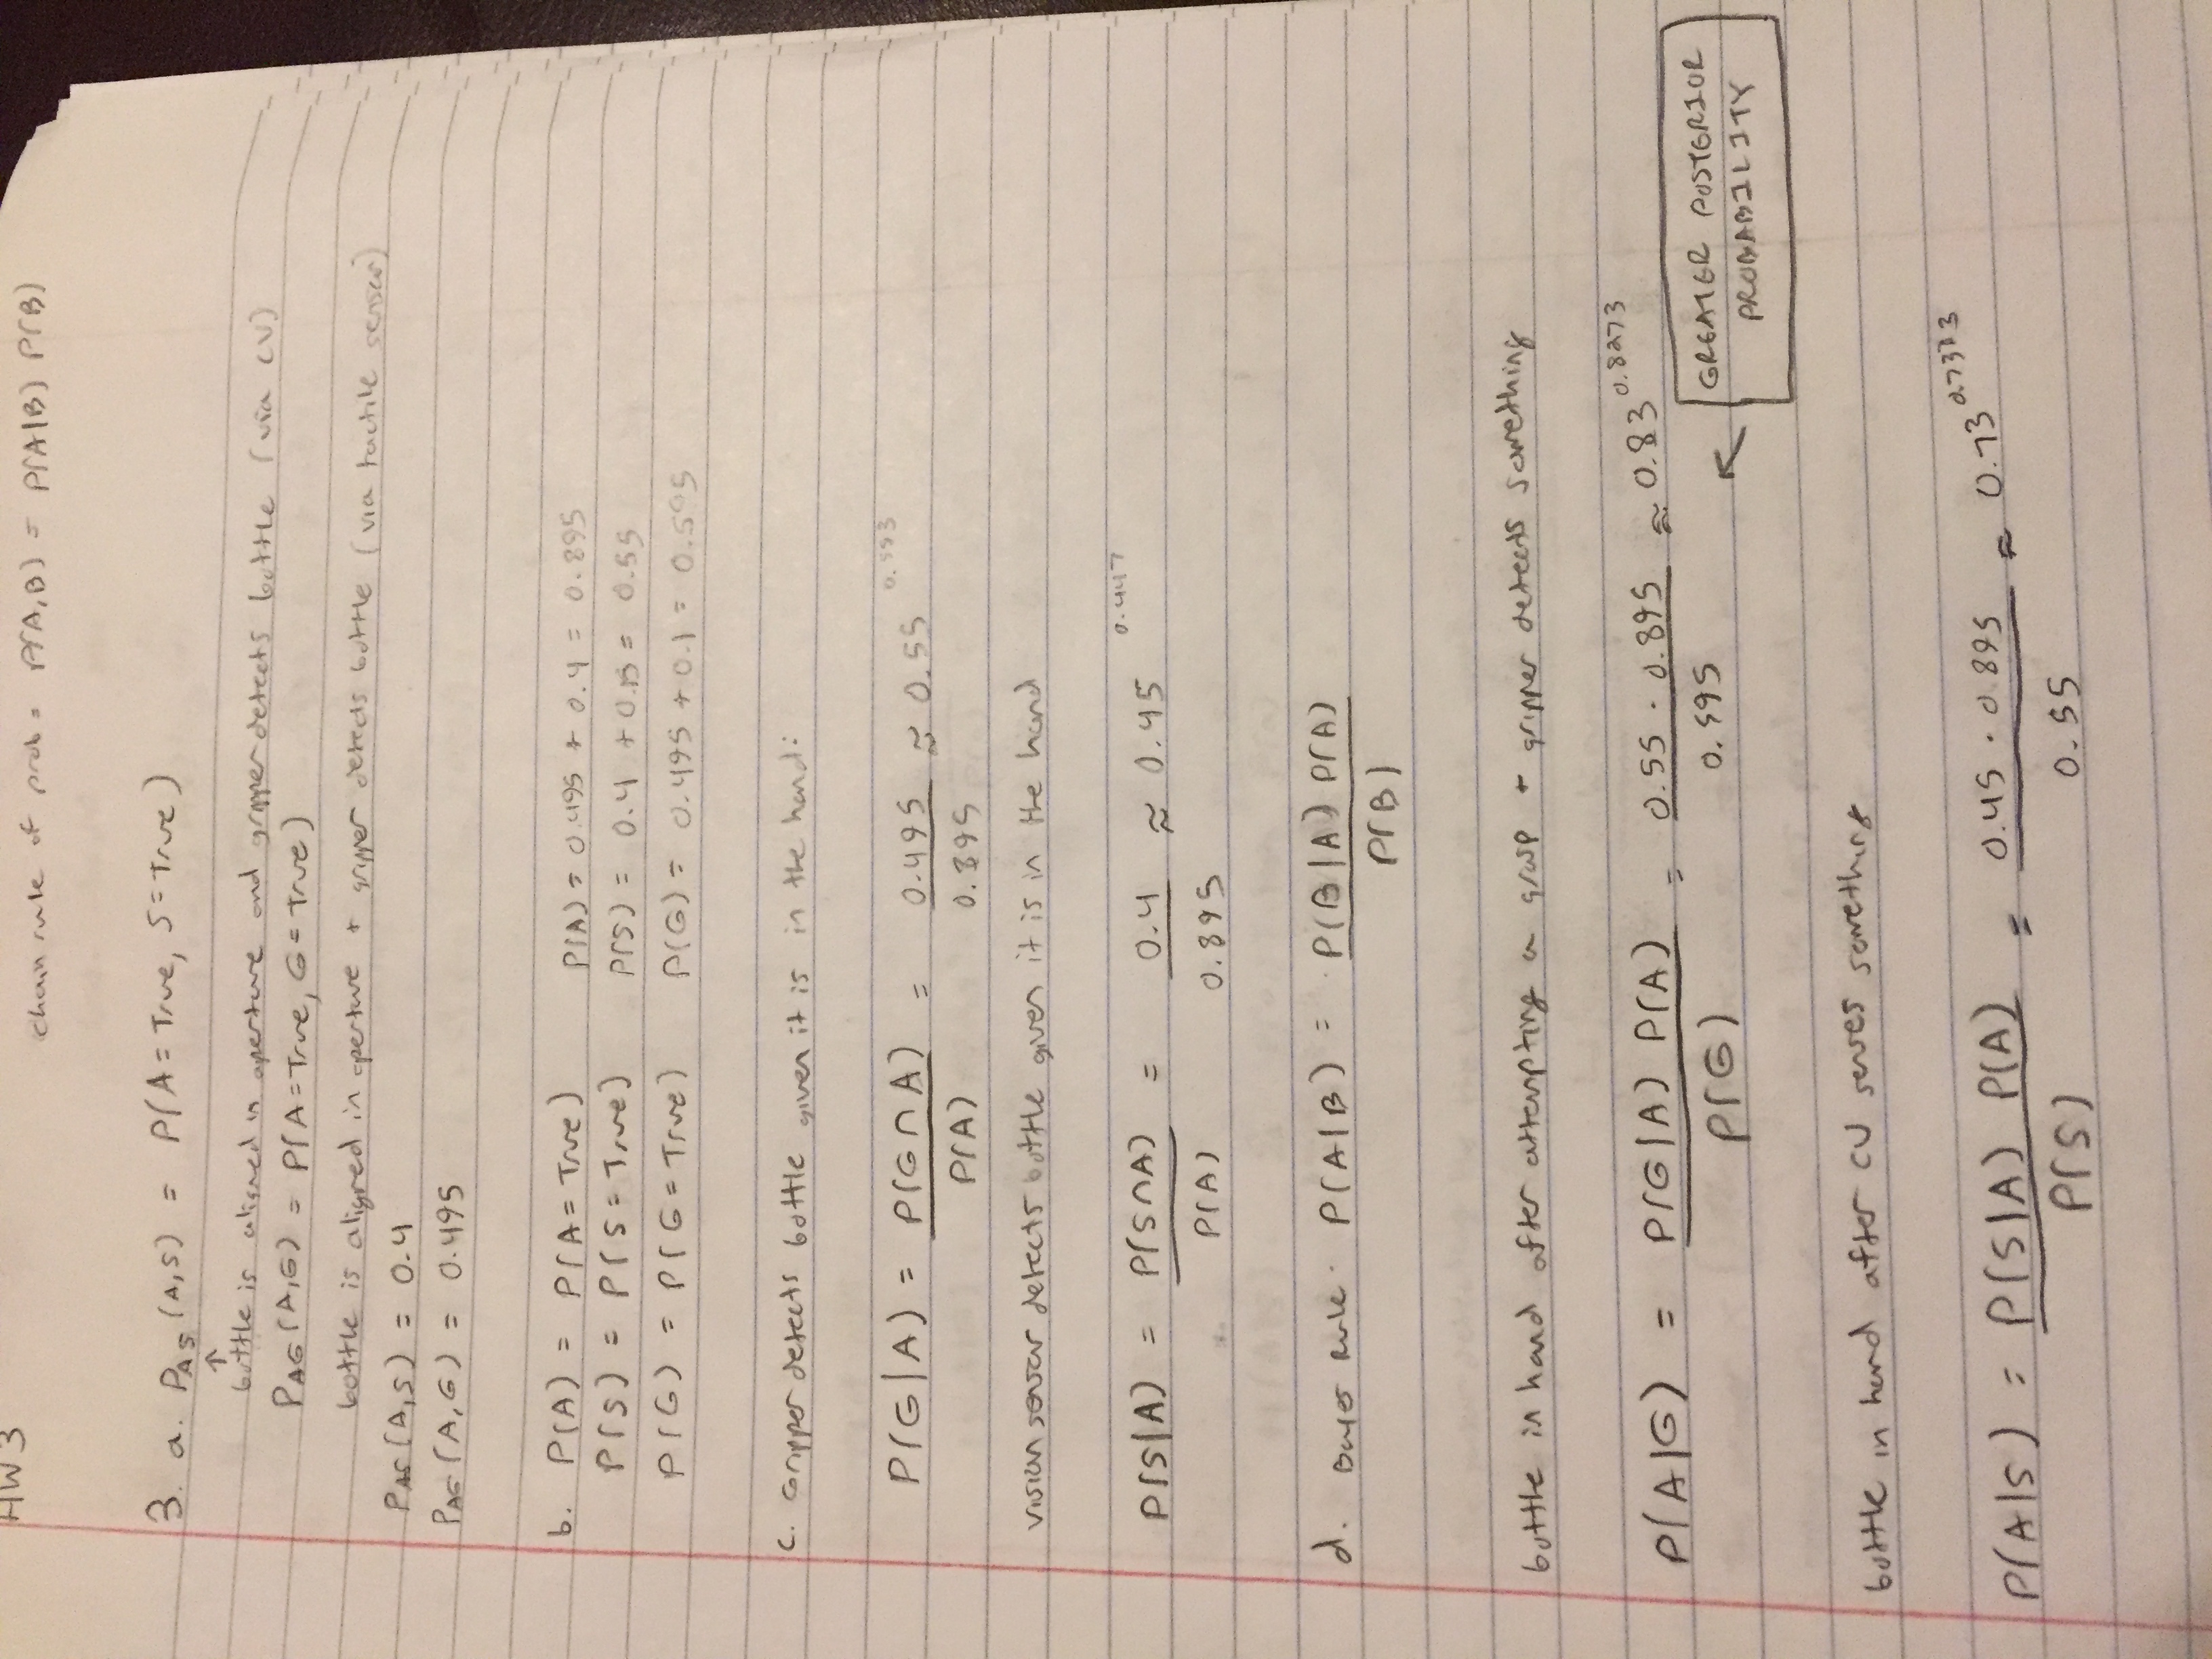 HW3
chain rule of prob = P(A,B) = P(A|B) P(B)
3. a. P_AS (A,S) = P(A = True, S = True)
↑
bottle is aligned in aperture and gripper detects bottle (via CV)
P_AG (A,G) = P(A = True, G = True)
bottle is aligned in aperture + gripper detects bottle (via tactile sensor)
P_AS (A,S) = 0.4
P_AG (A,G) = 0.495
b. P(A) = P(A = True) P(A) = 0.495 + 0.4 = 0.895
P(S) = P(S = True) P(S) = 0.4 + 0.15 = 0.55
P(G) = P(G = True) P(G) = 0.495 + 0.1 = 0.595
c. Gripper detects bottle given it is in the hand:
P(G|A) = P(G∩A) / P(A) = 0.495 / 0.895 ≈ 0.55 0.553
vision sensor detects bottle given it is in the hand
P(S|A) = P(S∩A) / P(A) = 0.4 / 0.895 ≈ 0.45 0.447
d. Bayes Rule. P(A|B) = P(B|A) P(A) / P(B)
bottle in hand after attempting a grasp + gripper detects something
P(A|G) = P(G|A) P(A) / P(G) = 0.55 · 0.895 / 0.595 ≈ 0.83 0.8273
GREATER POSTERIOR
PROBABILITY
bottle in hand after CV senses something
P(A|S) = P(S|A) P(A) / P(S) = 0.45 · 0.895 / 0.55 ≈ 0.73